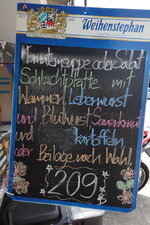 Weihenstephan
Tomatensuppe oder Salat
Schlachtplatte mit
Wammerl, Leberwurst
und Blutwurst, Sauerkraut
und Kartoffeln
oder Beilage nach Wahl.
209